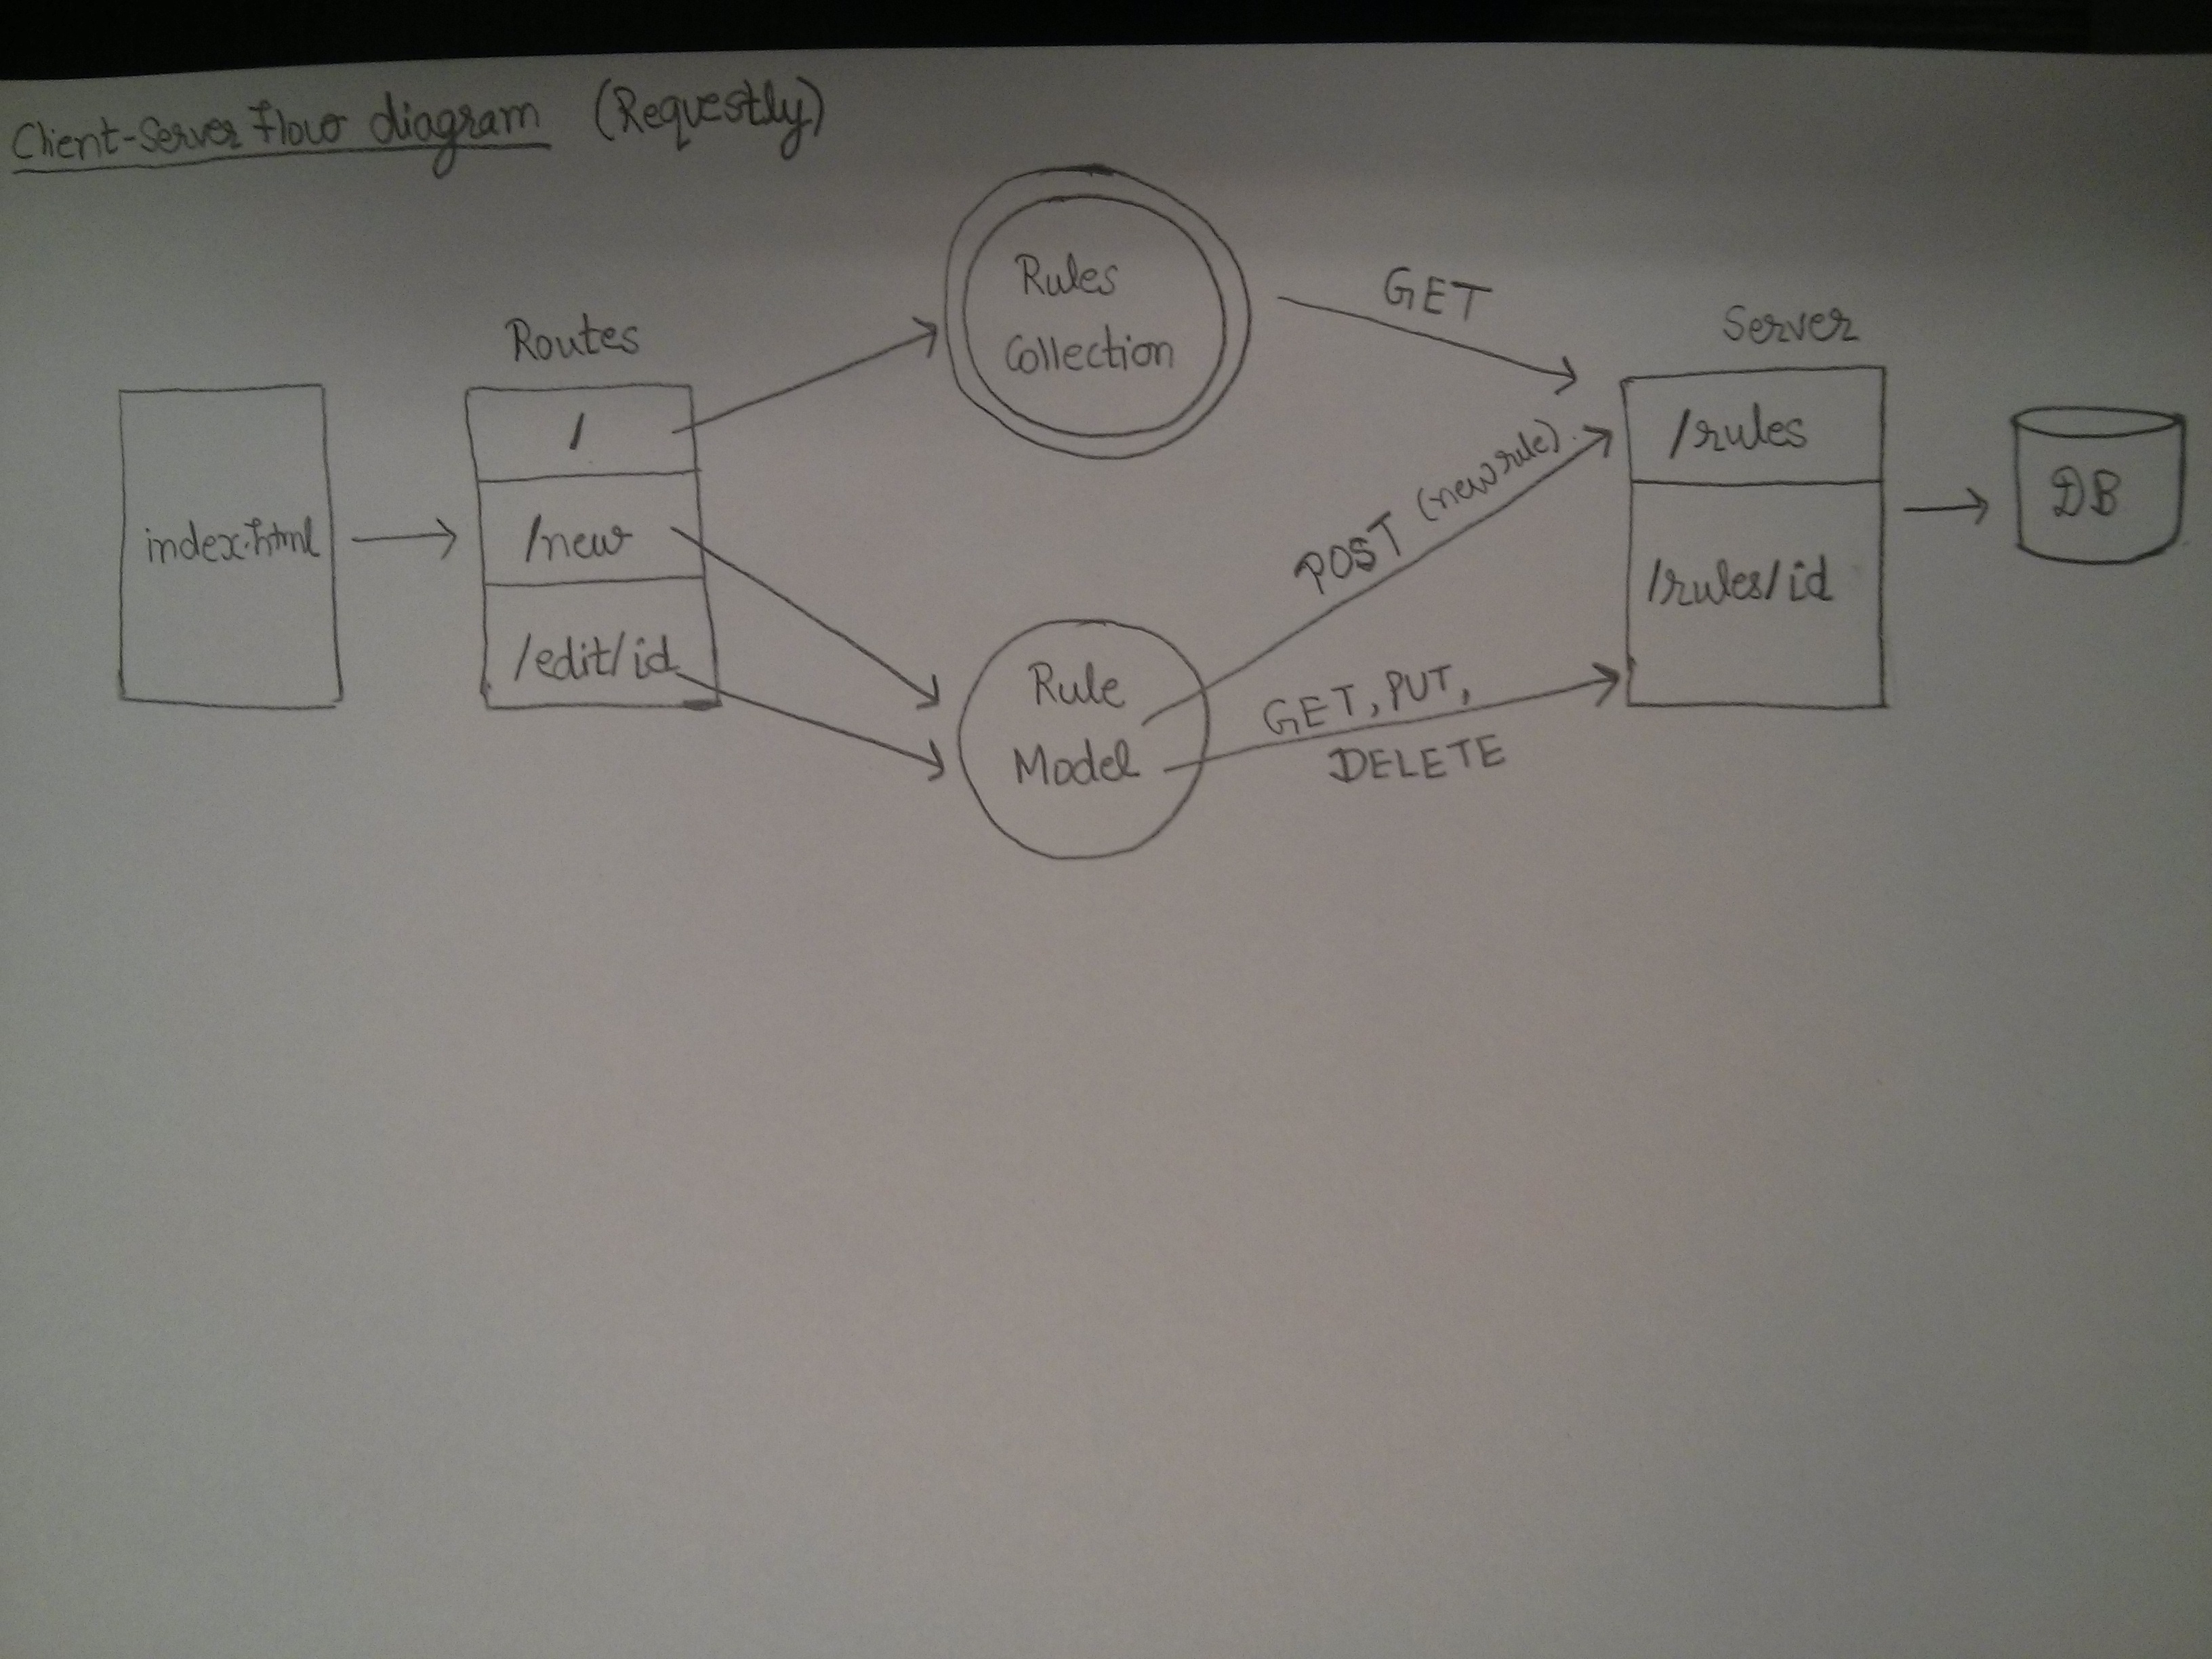 Client-Server Flow diagram (Requestly)
index.html
Routes
/
/new
/edit/id
Rules
Collection
Rule
Model
GET
POST (new rule).
GET, PUT,
DELETE
Server
/rules
/rules/id
DB